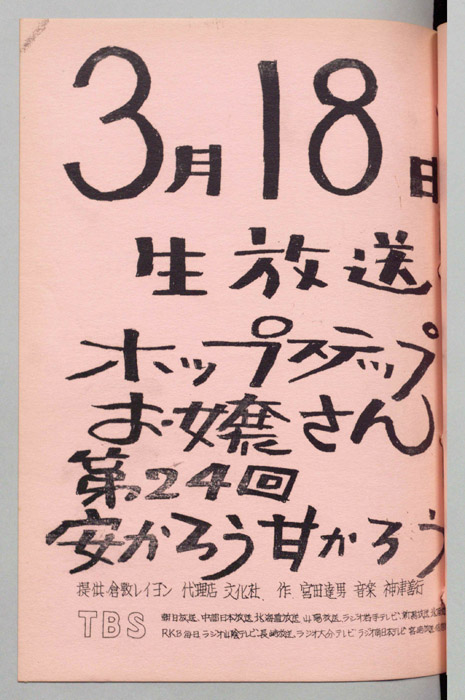 3月18日
生放送
ホップステップ
お嬢さん
第24回
安かろう甘かろう
提供・倉敷レイヨン 代理店 文化社、作 宮田達男 音楽 神津善行
TBS
朝日放送、中部日本放送、北海道放送、山陽放送、ラジオ岩手テレビ、新潟放送、
RKB毎日、ラジオ山陰テレビ、長崎放送、ラジオ大分テレビ、ラジオ南日本テレビ、宮崎放送